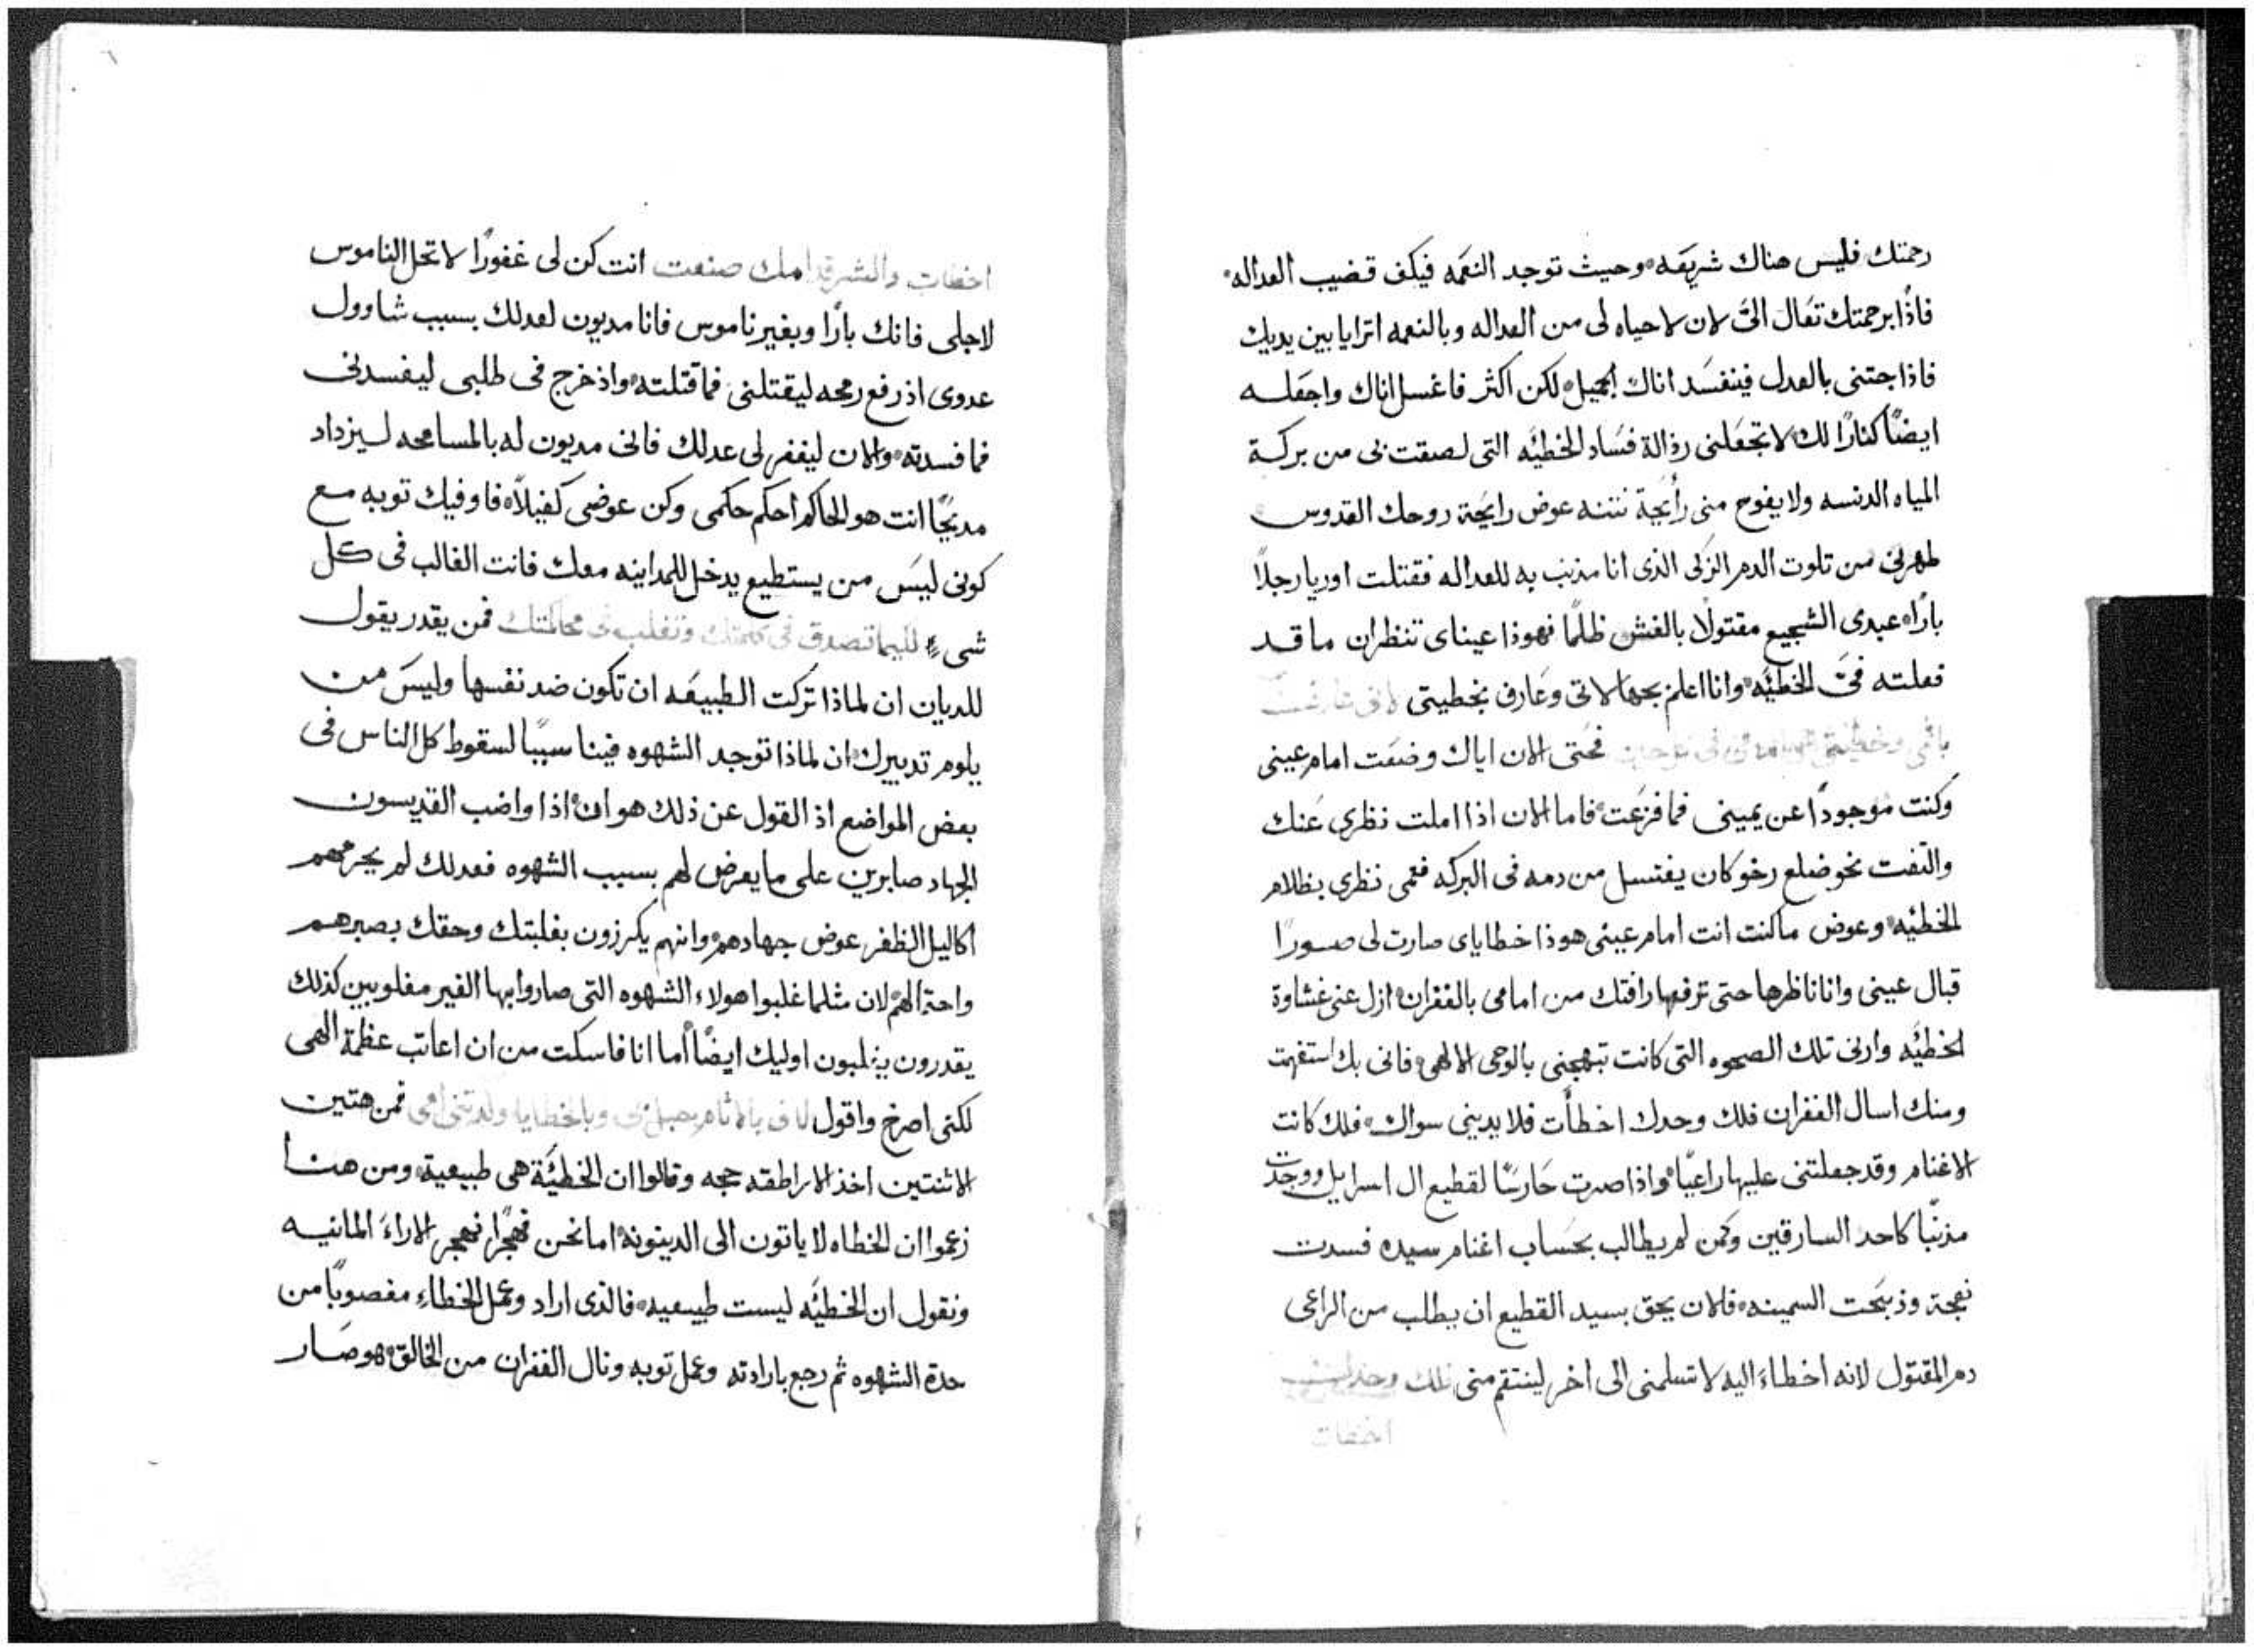 رحمتك فليس هناك شريعَه وحيث توجد النعَمه فيكف قضيب العداله
فاذًا برحمتك تعَال اليَّ لان لا حياه لى من العداله وبالنعمه اترايا بين يديك
فاذا جتنى بالعدل فينفسَد اناك الجميل لكن اكثر فاغسل اناك واجعَله
ايضًا كنارًا لك لا تجعَلنى رذالة فسَاد الخطيَه التى لصقت بى من بركة
المياه الدنسه ولا يفوح منى رأيَحة نتنه عوض رايحَة روحك القدوس
طهرنى من تلوت الدم الزكى الذى انا مذنب به للعداله فقتلت اوريا رجلاً
بارًا عبدى الشجيع مقتولًا بالغش ظلمًا فهوذا عيناى تنظران ما قد
فعلته فيَّ الخطيَه وانا اعلم بجهالاتى وعَارف بخطيتى لانى عارف
باثمى وخطيتى امامى فى كل حين فحَتى الان اياك وضعَت امام عينى
وكنت موجودًا عن يمينى فما فزعَت فاما الان اذا املت نظرى عَنك
والتفت نحو ضلع رخو كان يغتسل من دمه فى البركه فعمى نظرى بظلام
الخطيَه وعوض ما كنت انت امام عينى هوذا خطاياى صارت لى صورًا
قبال عينى وانا ناظرها حتى ترفعها رافتك من امامى بالغفران ازل عنى غشاوة
الخطيَه وارنى تلك الصحوه التى كانت تبهجنى بالوحى الالهى فانى بك استفهمت
ومنك اسال الغفران فلك وحدك اخطأت فلا يدينى سواك فلك كانت
الاغنام وقد جعلتنى عليها راعيًا واذا صرت حَارسًا لقطيع ال اسرايل ووجدت
مذنبًا كاحد السارقين وكمن لم يطالب بحسَاب اغنام سيده فسدت
نعجة وذبحَت السمينه فالان يحق بسيد القطيع ان يطلب من الراعى
دم المقتول لانه اخطاءَ اليه لا تسلمنى الى اخر لينتقم منى لك وحدك
اخطات
اخطات والشر قدامك صنعت انت كن لى غفورًا لا تحل الناموس
لاجلى فانك بارًا وبغير ناموس فانا مديون لعدلك بسبب شاوول
عدوى اذ رفع رمحه ليقتلنى فما قتلته واذ خرج فى طلبى ليفسدنى
فما فسدته والان ليغفر لى عدلك فانى مديون له بالمسامحه ليزداد
مديحًا انت هو الحاكم احكم حكمى وكن عوضى كفيلاً فاوفيك توبه مع
كونى ليسَ من يستطيع يدخل للمداينه معك فانت الغالب فى كل
شى لكيما تصدق فى كلمتك وتغلب فى محاكمتك فمن يقدر يقول
للديان ان لماذا تركت الطبيعَه ان تكون ضد نفسها وليسَ من
يلوم تدبيرك ان لماذا توجد الشهوه فينا سببًا لسقوط كل الناس فى
بعض المواضع اذ القول عن ذلك هو ان اذا واضب القديسون
الجهاد صابرين على ما يعرض لهم بسبب الشهوه فعدلك لم يحرمهم
اكاليل الظفر عوض جهادهم وانهم يكرزون بغلبتك وحقك بصبرهم
واحتمالهم لان مثلما غلبوا هولاء الشهوه التى صاروا بها الغير مغلوبين كذلك
يقدرون يغلبون اوليك ايضًا أما انا فاسكت من ان اعاتب عظمة الهى
لكنى اصرخ واقول لانى بالاثام حبل بى وبالخطايا ولدتنى امى فمن هتين
الاثنتين اخذ الاراطقه حجه وقالوا ان الخطيَة هى طبيعية ومن هنا
زعموا ان الخطاه لا ياتون الى الدينونه اما نحن فهجرًا نهجر الاراءَ المانيه
ونقول ان الخطيَه ليست طبيعيه فالذى اراد وعمل الخطاءِ مغصوبًا من
حدة الشهوه ثم رجع بارادته وعمل توبه ونال الغفران من الخالق هو صَار